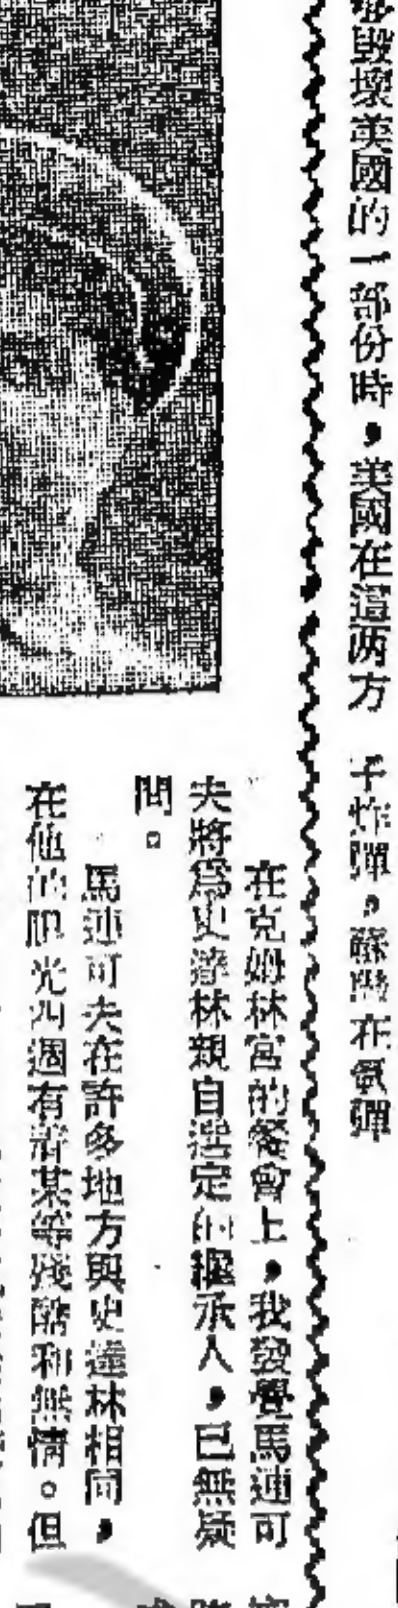 毀壞美國的一部份時，美國在這两方
子炸彈。蘇聯在氫彈
在克姆林宮的餐會上，我發覺馬連可
夫將爲史達林親自選定的繼承人，已無疑
問。
馬連可夫在許多地方與史達林相同，
在他的眼光四週有着某等殘酷和無情。但